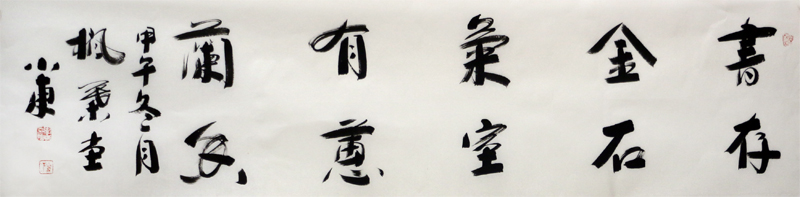 書存
金石
氣室
有蕙
蘭香
甲午冬月
楓葉堂
小